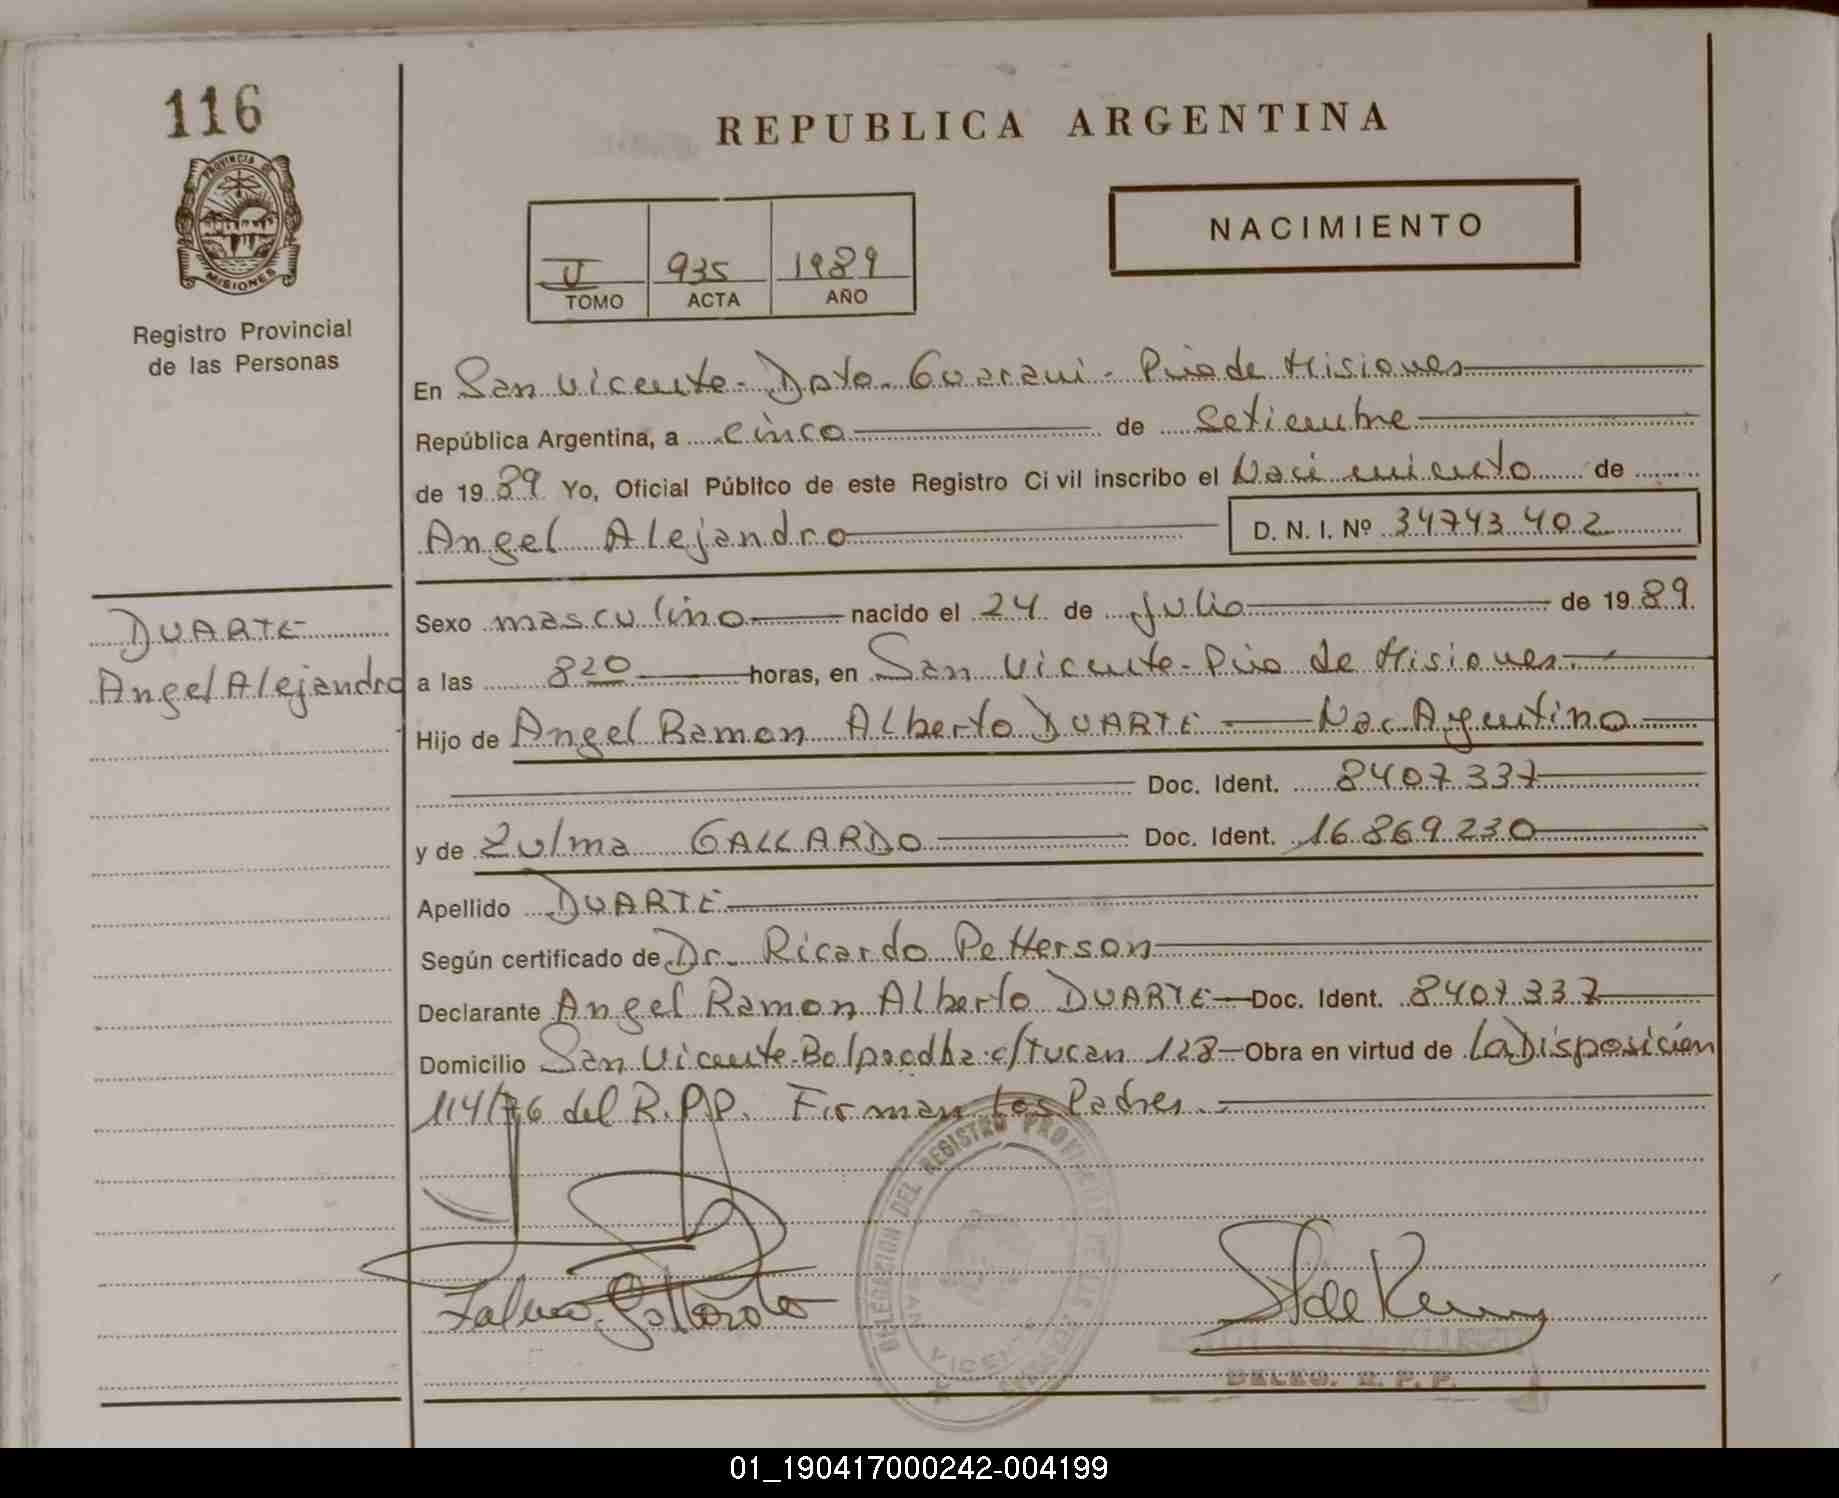 116
REPUBLICA ARGENTINA
PROVINCIA DE
MISIONES
Registro Provincial
de las Personas
NACIMIENTO
935 1989
TOMO ACTA AÑO
En San Vicente - Dpto. Guarani - Pcia de Misiones
República Argentina, a cinco de Setiembre
de 1989 Yo, Oficial Público de este Registro Civil inscribo el Nacimiento de
Angel Alejandro D. N. I. Nº 34743402
DUARTE
Angel Alejandro
Sexo masculino nacido el 24 de Julio de 1989.
a las 820 horas, en San Vicente - Pcia de Misiones.
Hijo de Angel Ramon Alberto DUARTE Nac Argentino
Doc. Ident. 8407337
y de Zulma GALLARDO Doc. Ident. 16.869.230
Apellido DUARTE
Según certificado de Dr. Ricardo Petterson
Declarante Angel Ramon Alberto DUARTE Doc. Ident. 8407337
Domicilio San Vicente c/Tucan 128 Obra en virtud de La Disposición
114/76 del R.P.P. Firman Los Padres.
DELEGACION DEL REGISTRO PROVINCIAL DE LAS
SAN VICENTE
Zulma Gallardo
DELEG. R. P. P.
01_190417000242-004199